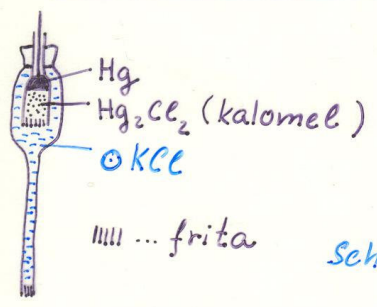 Hg
Hg₂Cl₂ (kalomel)
⊙ KCl
... frita
Sch